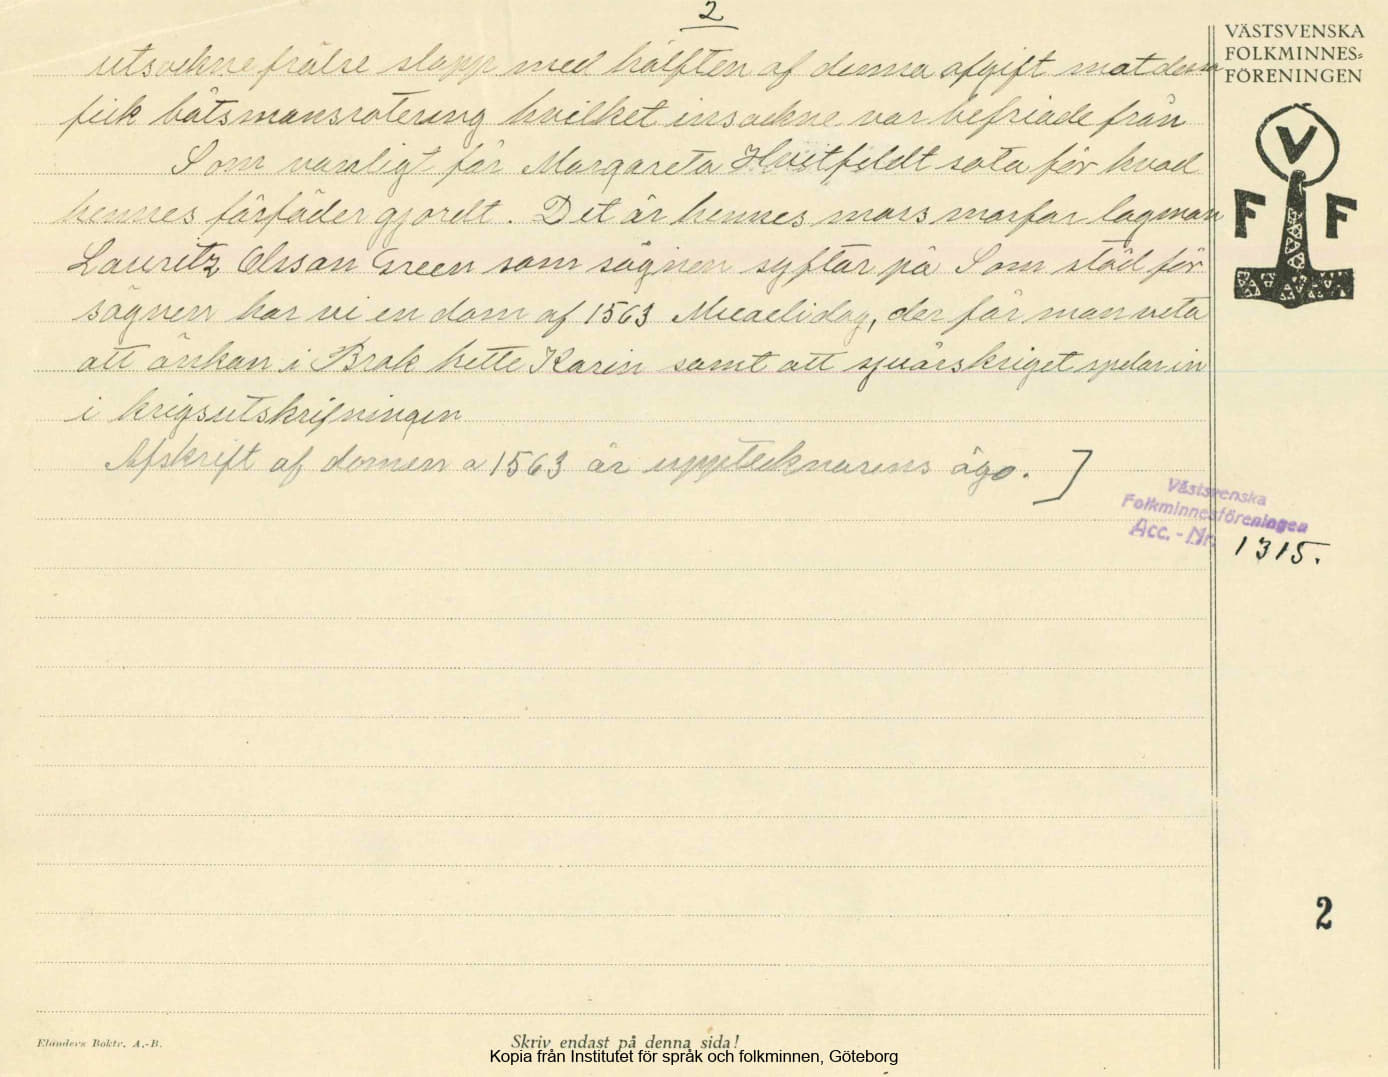 2
utsockne frälse slapp med hälften af denna afgift mot dessa
fick båtsmansrotering hvilket insockne var befriade från
Som vanligt får Margareta Hvitfeldt sota för hvad
hennes förfäder gjordt. Det är hennes mors morfar lagman
Lauritz Olsson Green som sägnen syftar på Som stöd för
sägnen har vi en dom af 1563 Micaelidag, der får man veta
att änkan i Brok hette Karin samt att sjuårskriget spelar in
i krigsutskrifningen
Afskrift af domen a 1563 är upptecknarens ägo. ]
VÄSTSVENSKA
FOLKMINNES=
FÖRENINGEN
V
F F
Västsvenska
Folkminnesföreningen
Acc. - Nr. 1315.
2
Elanders Boktr. A.-B.
Skriv endast på denna sida!
Kopia från Institutet för språk och folkminnen, Göteborg